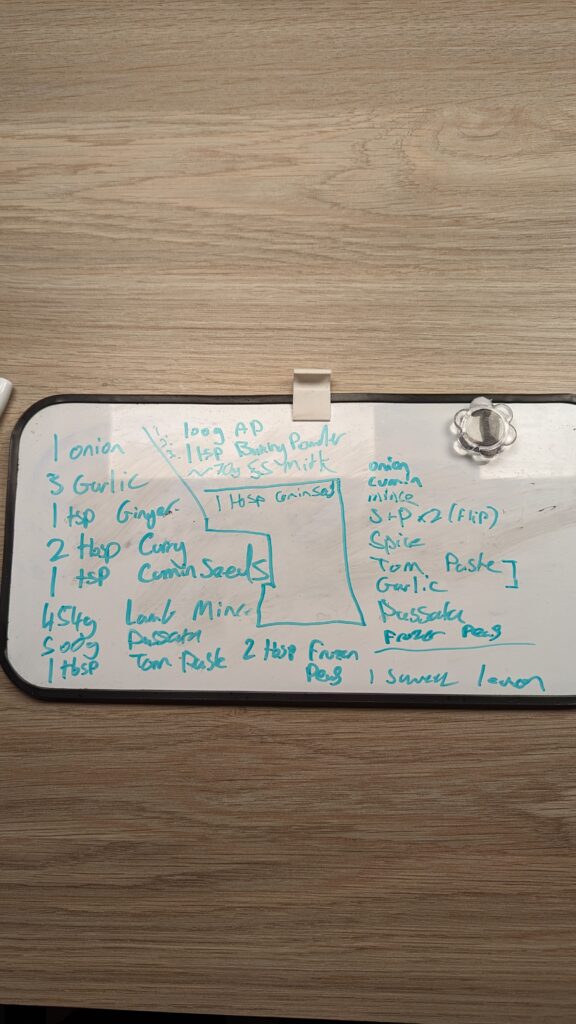 1 onion
3 Garlic
1 tsp Ginger
2 tbsp Curry
1 tsp Cumin Seeds
454g Lamb Mince
500g Passata
1 tbsp Tom Paste
2 tbsp Frozen
Peas
1. 100g AP
2. 1 tsp Baking Powder
3. ~70g SS Milk
1 tbsp Cumin Seed
onion
cumin
mince
S+P x2 (Flip)
Spice
Tom Paste
Garlic
Passata
Frozen Peas
1 lemon